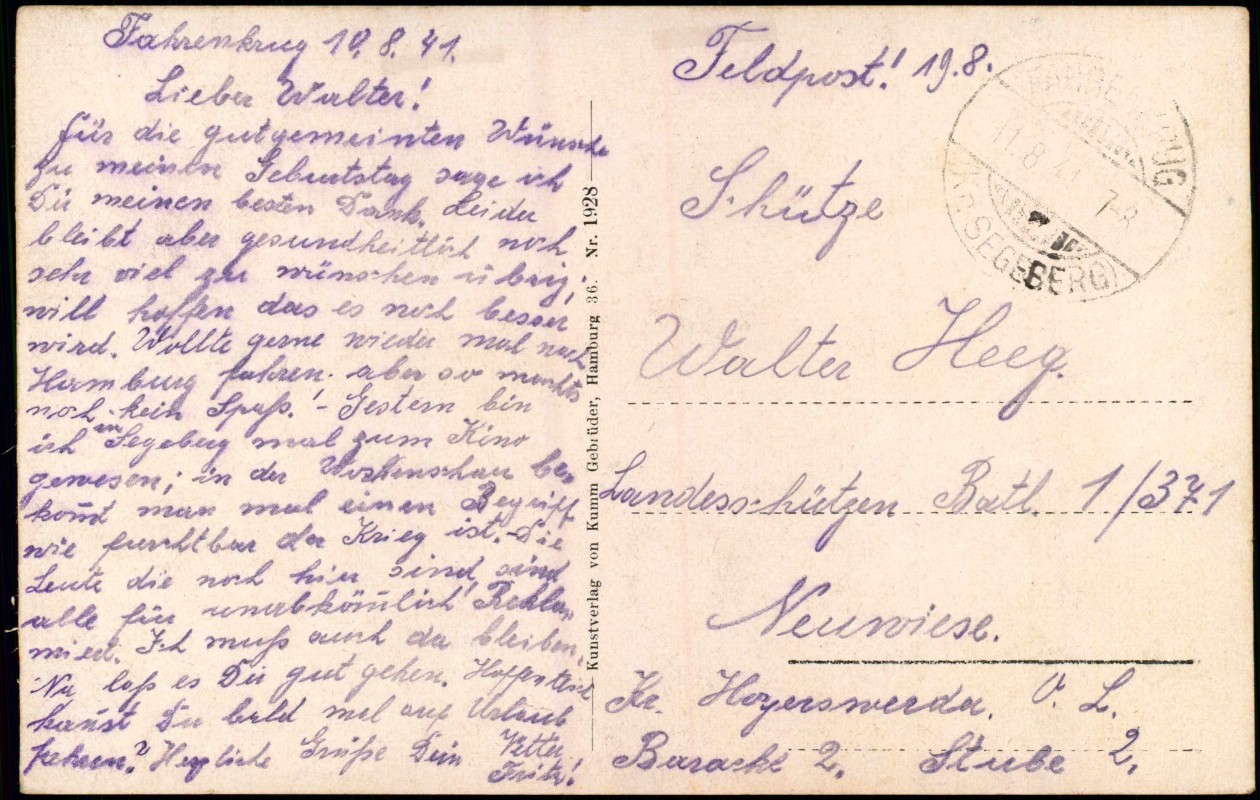 Fahrenkrug 10.8.41.
Lieber Walter!
für die gutgemeinten Wünsche
zu meinen Geburtstag sage ich
Dir meinen besten Dank. Leider
bleibt aber gesundheitlich noch
sehr viel zu wünschen übrig,
will hoffen das es noch besser
wird. Wollte gerne wieder mal nach
Hamburg fahren. aber so machts
noch kein Spaß.! - Gestern bin
ich in Segeberg mal zum Kino
gewesen; in der Wochenschau be-
kom̄t man mal einen Begriff
wie furchtbar der Krieg ist. - Die
Leute die noch hier sind, sind
alle für unabköm̄lich Rekla-
miert. Ich muß auch da bleiben.
Na laß es Dir gut gehen. Hoffentlich
kan̄st Du bald mal auf Urlaub
fahren.? Herzliche Grüße Dein Vetter
Fritz!
Kunstverlag von Kumm Gebrüder, Hamburg 36. Nr. 1928
Feldpost! 19.8.
FAHRENKRUG
8 41 7-8
(KR. SEGEBERG)
Schütze
Walter Heeg.
Landesschützen Batl. 1/371
Neuwiese.
Kr. Hoyerswerda. O. L.
Baracke 2. Stube 2.